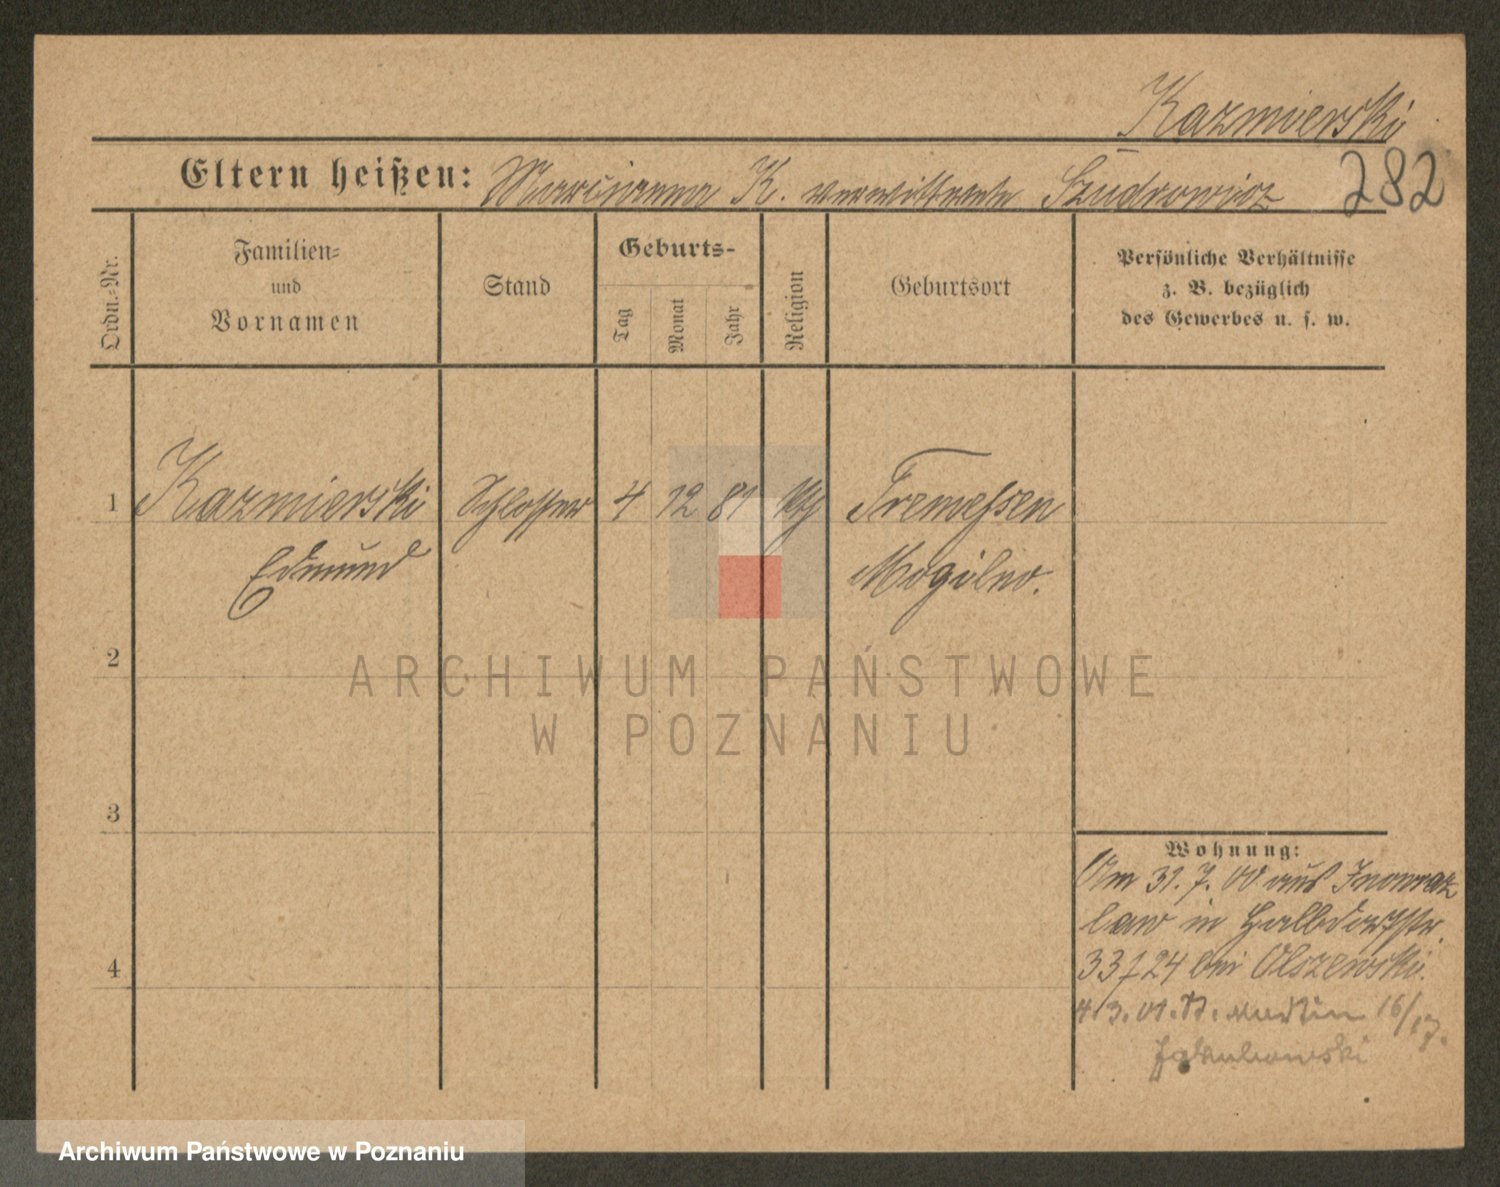 Kazmierski
Eltern heißen: Marianna K. verwittwete Szudrowicz
282
Ordn.-Nr.
Familien-
und
Vornamen
Stand
Geburts-
Tag
Monat
Jahr
Religion
Geburtsort
Persönliche Verhältnisse
z. B. bezüglich
des Gewerbes u. s. w.
1 Kazmierski Schlosser 4 12 81 kth Tremessen
Edmund Mogilno.
2
ARCHIWUM PAŃSTWOWE
W POZNANIU
3
Wohnung:
Am 31.7.00 aus Inowraz
law in Halbdorfstr.
4
33/24 bei Olszewski.
4.3.01. St. Martin 16/17.
Jakubowski
Archiwum Państwowe w Poznaniu